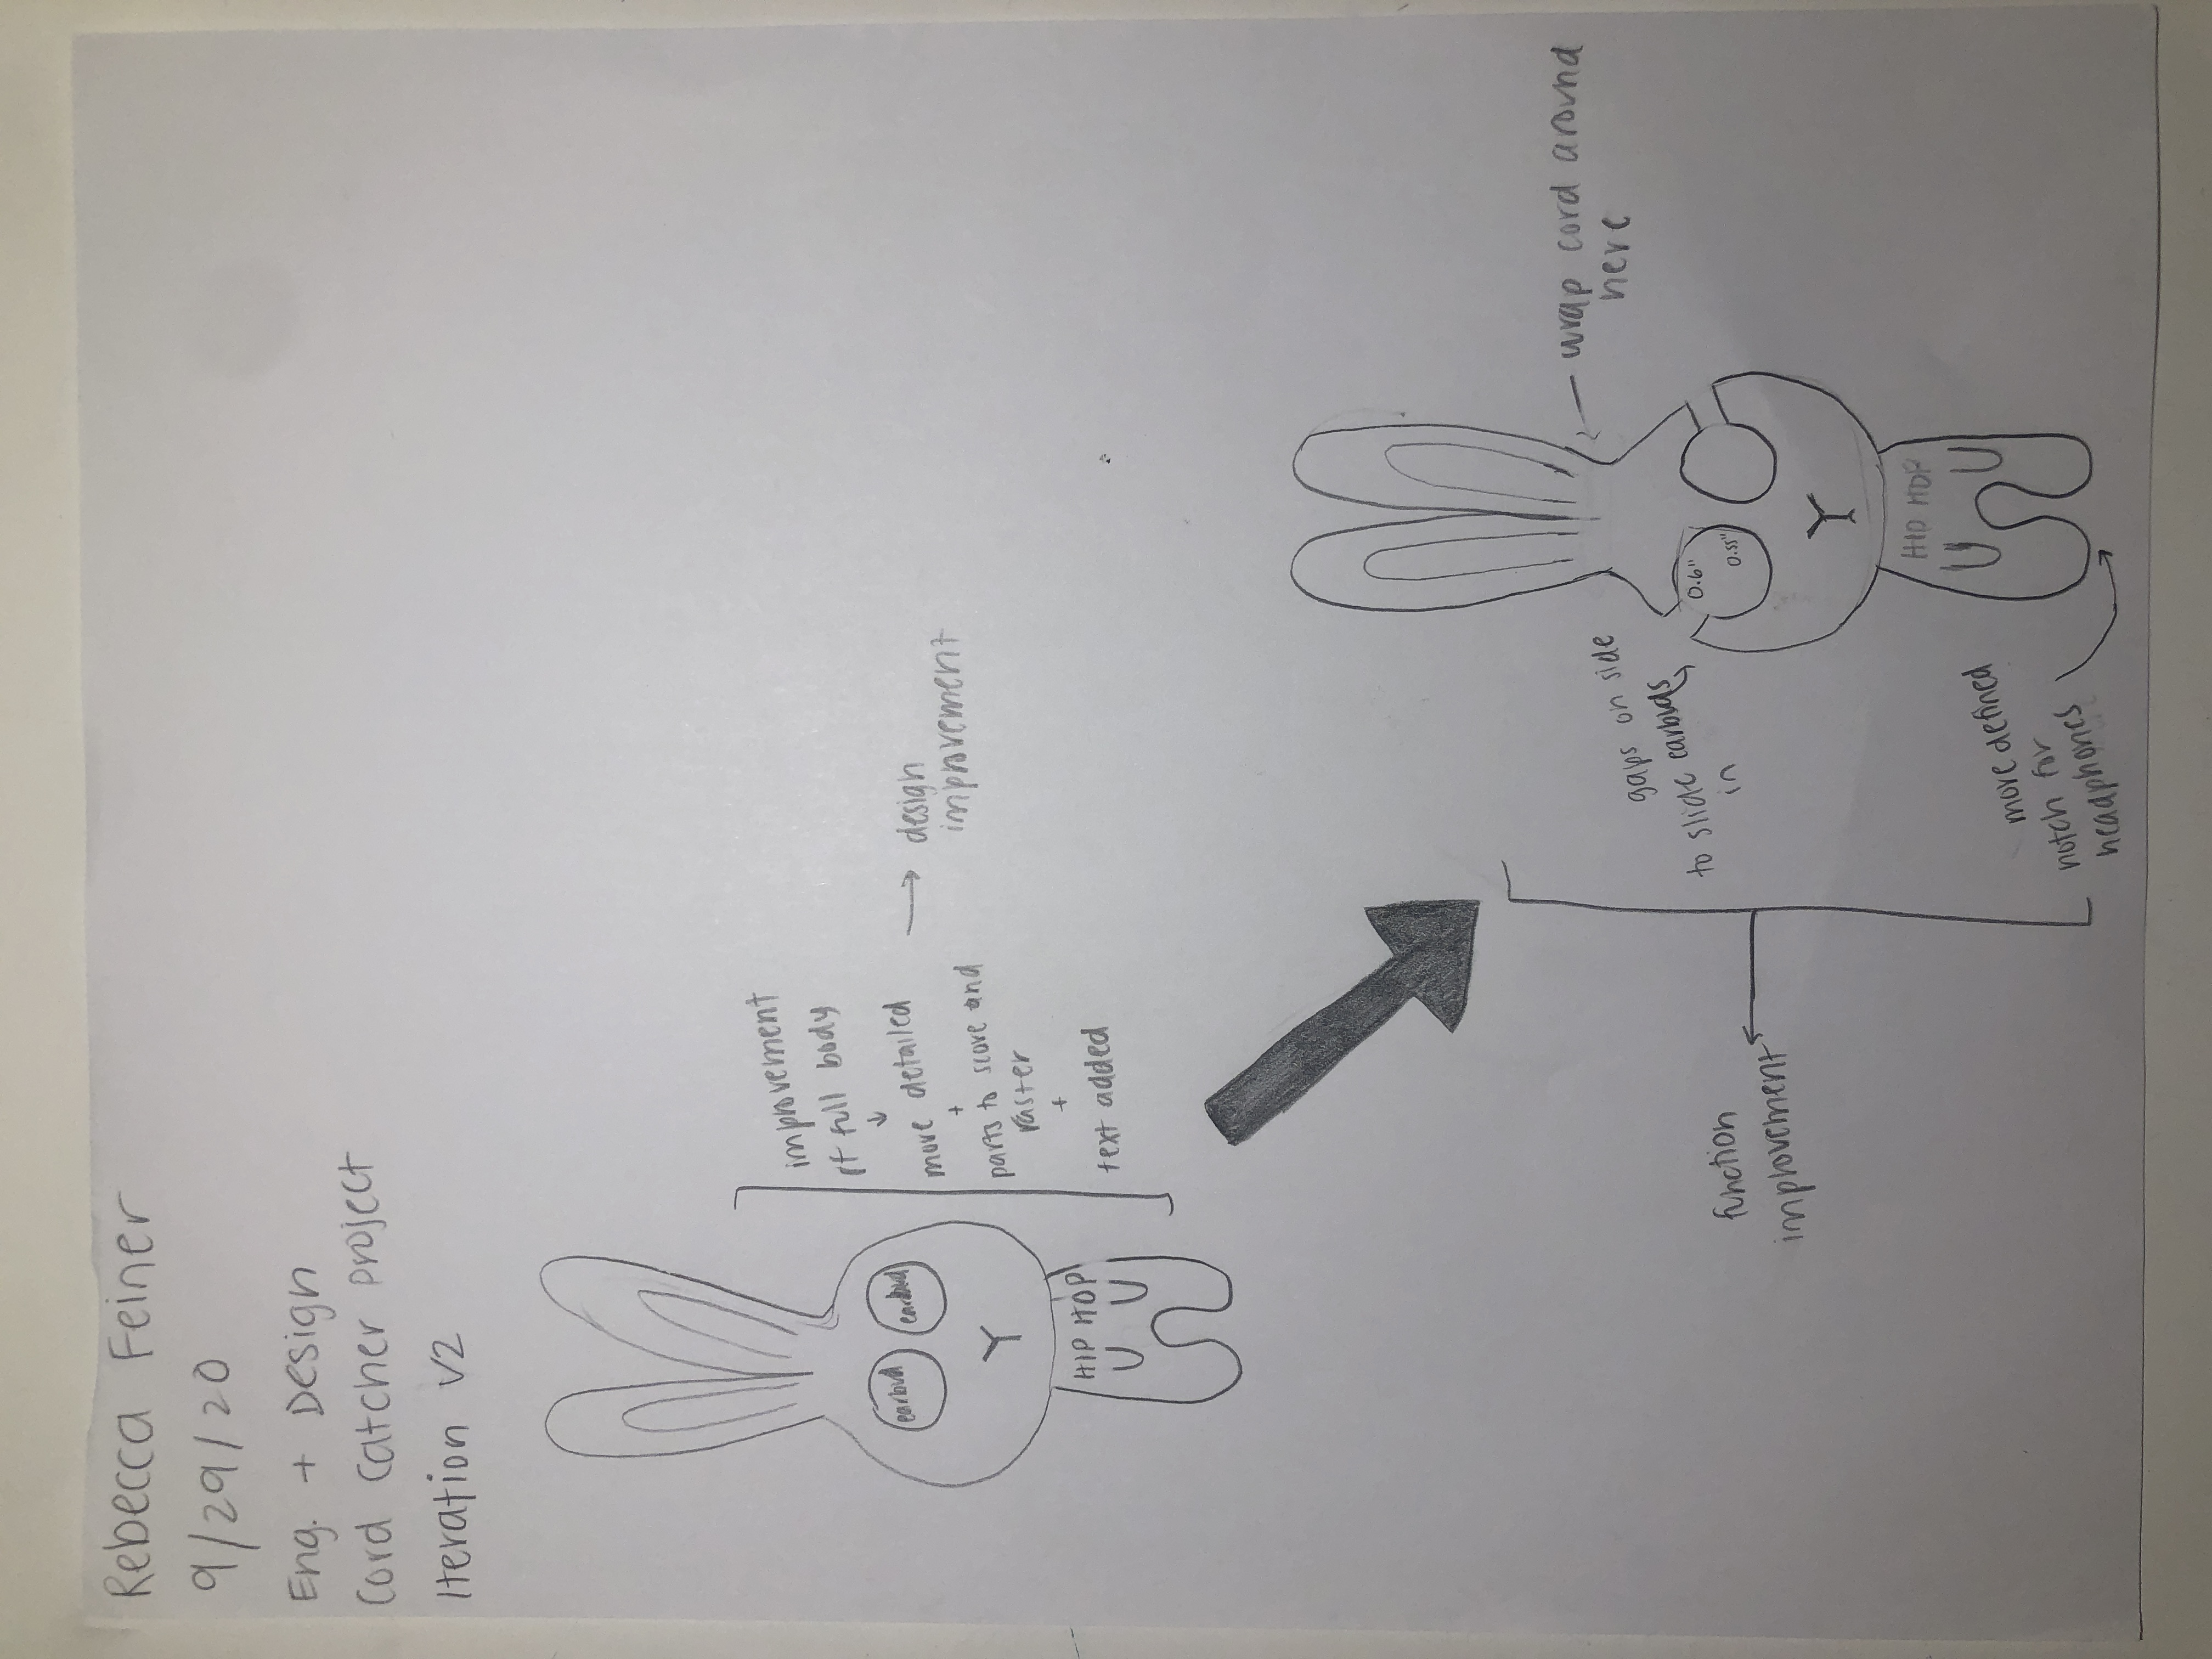 Rebecca Feiner
9/29/20
Eng. + Design
Cord Catcher project
Iteration V2
earbud earbud
Y
HIP HOP
improvement
of full body
↓
more detailed
+
parts to score and
raster
+
text added
→ design
improvement
wrap cord around
here
gaps on side
to slide earbuds
in
0.6"
0.55"
function
improvement
HIP HOP
more defined
notch for
headphones